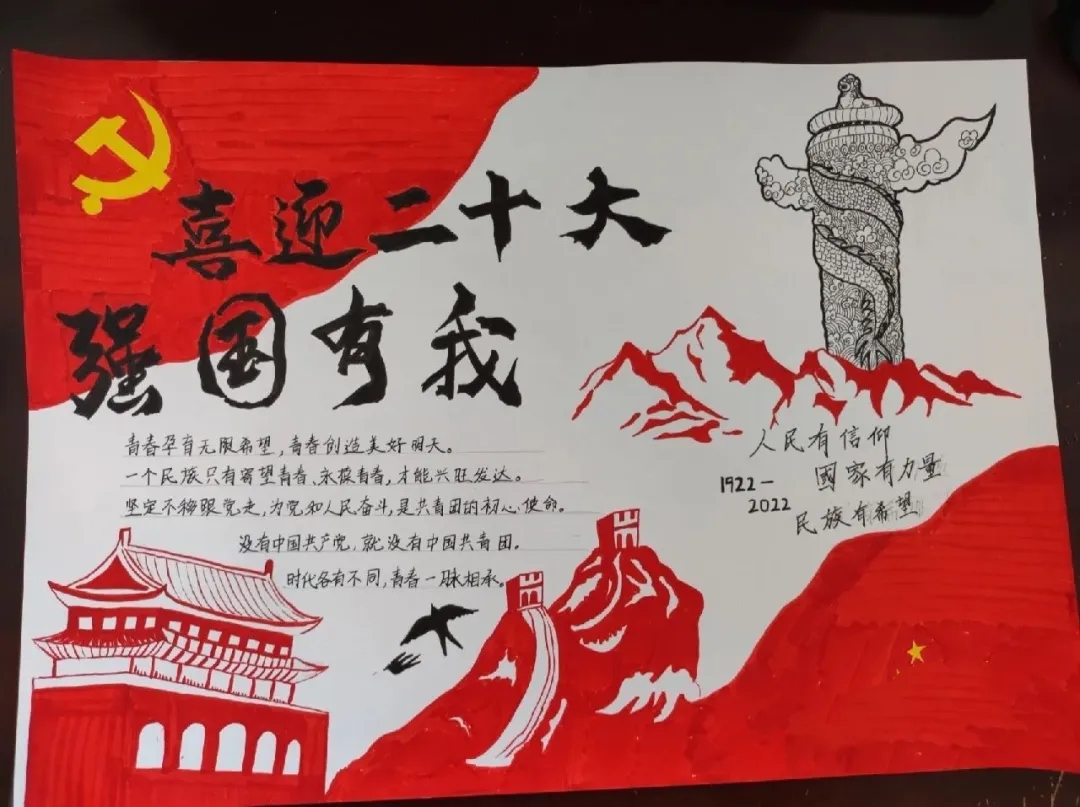 喜迎二十大
强国有我
青春孕育无限希望，青春创造美好明天。
一个民族只有寄望青春、永葆青春，才能兴旺发达。
坚定不移跟党走，为党和人民奋斗，是共青团的初心使命。
没有中国共产党，就没有中国共青团。
时代各有不同，青春一脉相承。
人民有信仰
國家有力量
民族有希望
1922—
2022